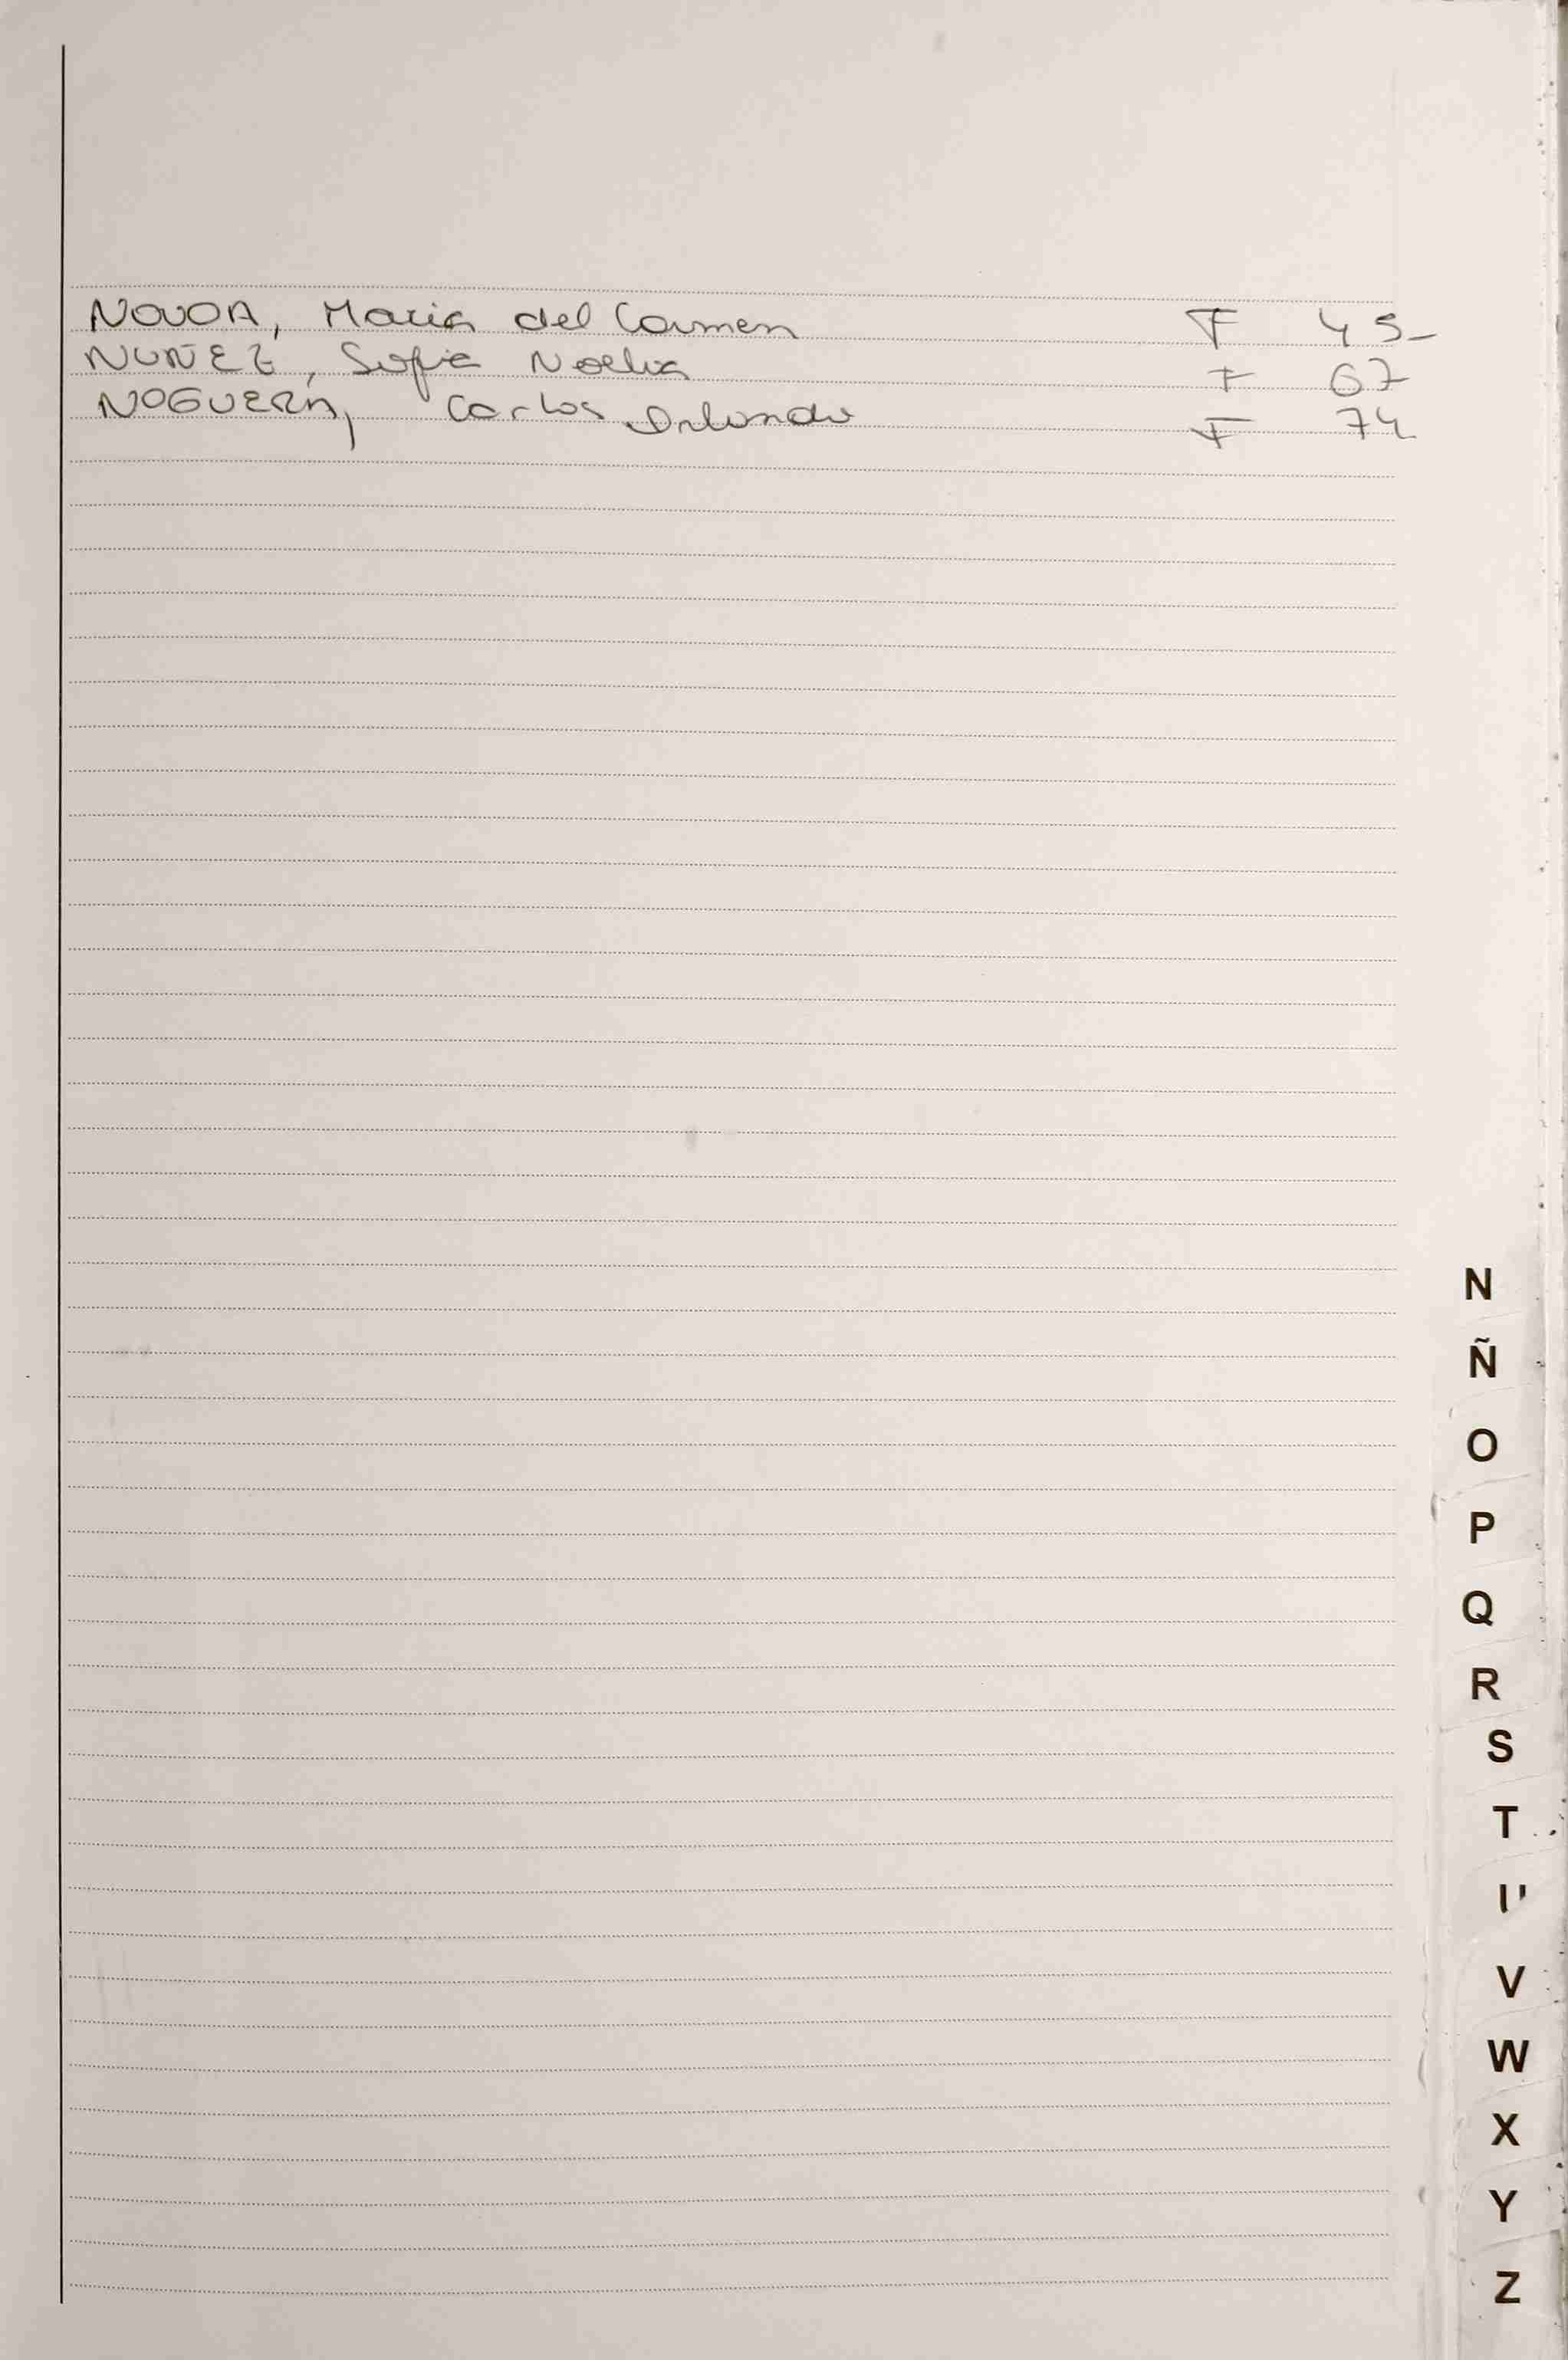 NOVOA, Maria del Carmen F 45-
NUÑEZ, Sofia Noelia F 67
NOGUERA, Carlos Orlando F 74
N
Ñ
O
P
Q
R
S
T
U
V
W
X
Y
Z